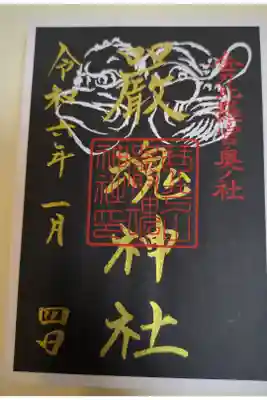 金刀比羅宮奥ノ社
嚴魂神社
令和六年 一月 四日